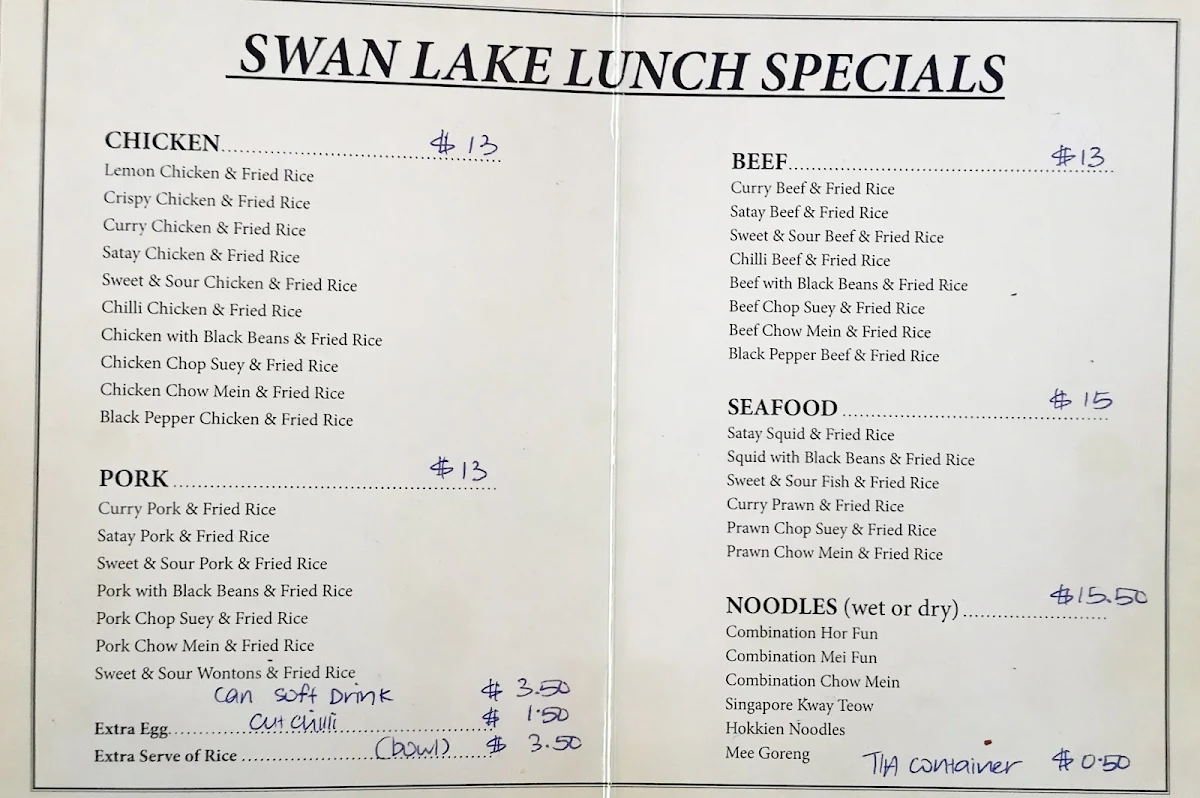 SWAN LAKE LUNCH SPECIALS
CHICKEN.......................................... $ 13
Lemon Chicken & Fried Rice
Crispy Chicken & Fried Rice
Curry Chicken & Fried Rice
Satay Chicken & Fried Rice
Sweet & Sour Chicken & Fried Rice
Chilli Chicken & Fried Rice
Chicken with Black Beans & Fried Rice
Chicken Chop Suey & Fried Rice
Chicken Chow Mein & Fried Rice
Black Pepper Chicken & Fried Rice
PORK.......................................... $ 13
Curry Pork & Fried Rice
Satay Pork & Fried Rice
Sweet & Sour Pork & Fried Rice
Pork with Black Beans & Fried Rice
Pork Chop Suey & Fried Rice
Pork Chow Mein & Fried Rice
Sweet & Sour Wontons & Fried Rice
Can Soft Drink $ 3.50
Extra Egg.......... Cut Chilli .......... $ 1.50
Extra Serve of Rice .......... (bowl) .......... $ 3.50
BEEF.......................................... $13
Curry Beef & Fried Rice
Satay Beef & Fried Rice
Sweet & Sour Beef & Fried Rice
Chilli Beef & Fried Rice
Beef with Black Beans & Fried Rice
Beef Chop Suey & Fried Rice
Beef Chow Mein & Fried Rice
Black Pepper Beef & Fried Rice
SEAFOOD.......................................... $ 15
Satay Squid & Fried Rice
Squid with Black Beans & Fried Rice
Sweet & Sour Fish & Fried Rice
Curry Prawn & Fried Rice
Prawn Chop Suey & Fried Rice
Prawn Chow Mein & Fried Rice
NOODLES (wet or dry).......................... $15.50
Combination Hor Fun
Combination Mei Fun
Combination Chow Mein
Singapore Kway Teow
Hokkien Noodles
Mee Goreng
T/A container $ 0.50